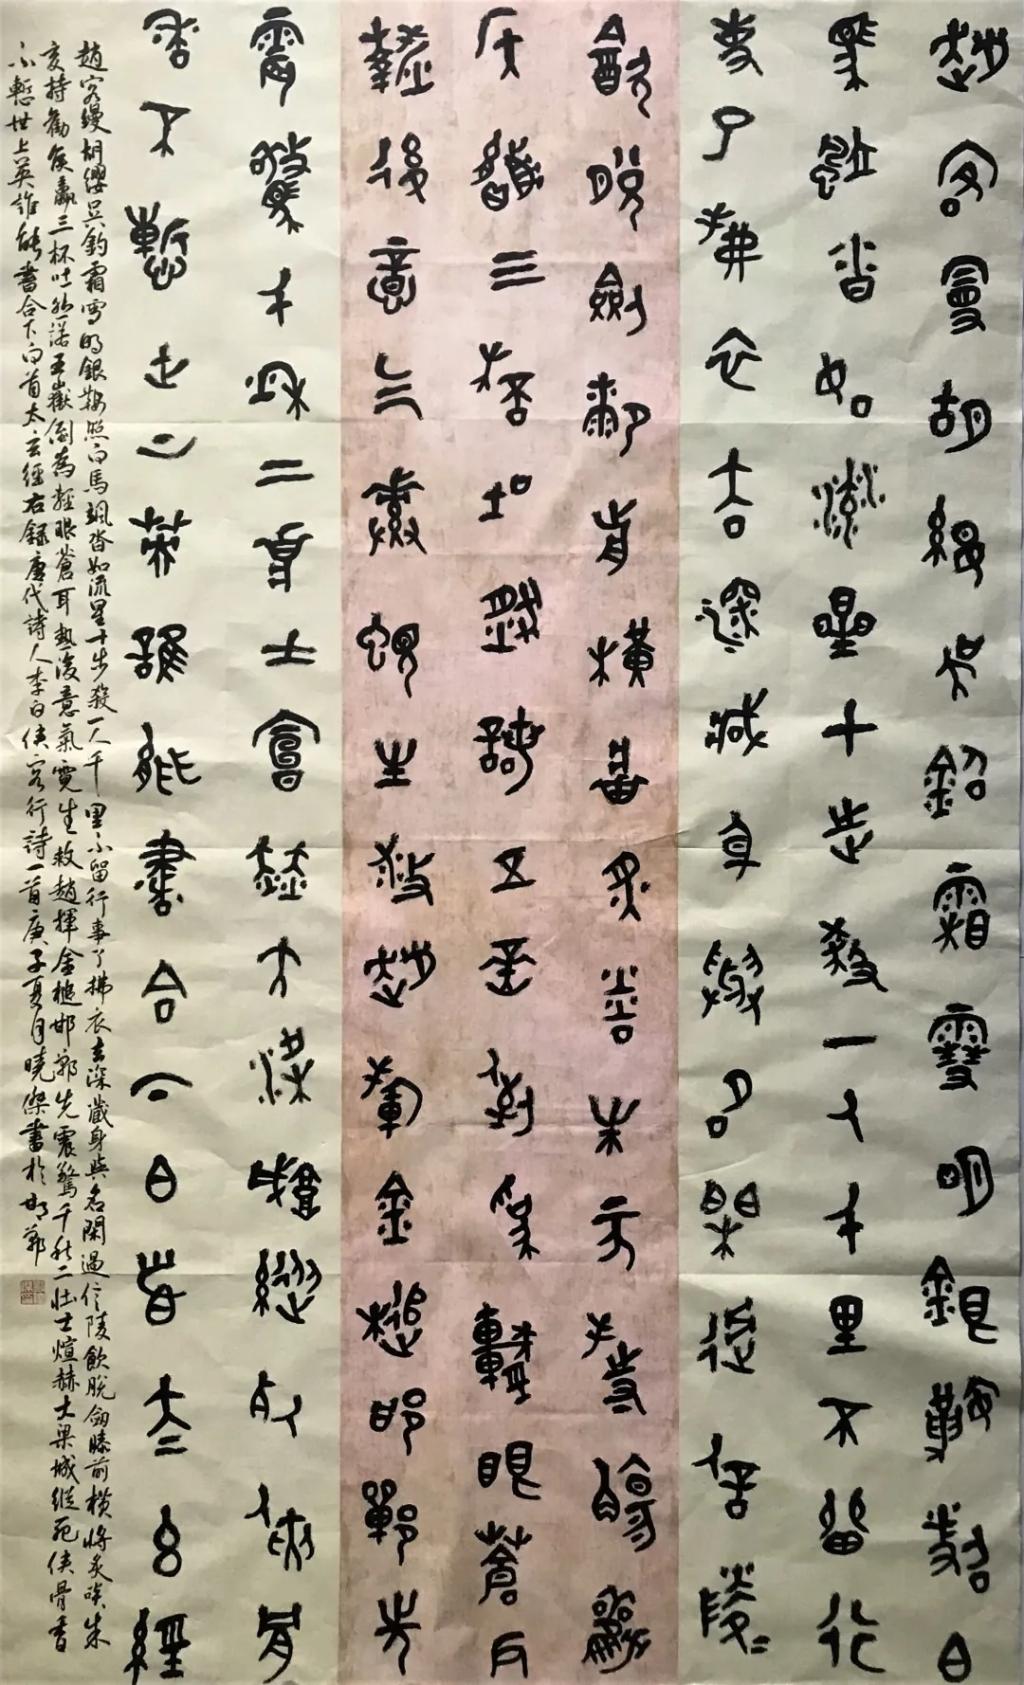 趙客縵胡纓吳鉤霜雪明銀鞍照白
馬颯沓如流星十步殺一人千里不留行
事了拂衣去深藏身與名閑過信陵
飲脫劍膝前橫將炙啖朱亥持觴勸
侯嬴三杯吐然諾五嶽倒為輕眼蒼耳
熱後意氣素霓生救趙揮金槌邯鄲先
震驚千秋二壯士煊赫大梁城縱死俠骨
香不慚世上英誰能書合下白首太玄經
趙客縵胡纓吳鈎霜雪明銀鞍照白馬颯沓如流星十步殺一人千里不留行事了拂衣去深藏身與名閑過信陵飲脫劍膝前橫將炙啖朱
亥持勸侯嬴三杯吐然諾五嶽倒為輕眼蒼耳熱後意氣霓生救趙揮金槌邯鄲先震驚千秋二壯士煊赫大梁城縱死俠骨香
不慙世上英誰能書合下白首太玄經右録唐代詩人李白俠客行詩一首庚子夏月曉傑書於邯鄲